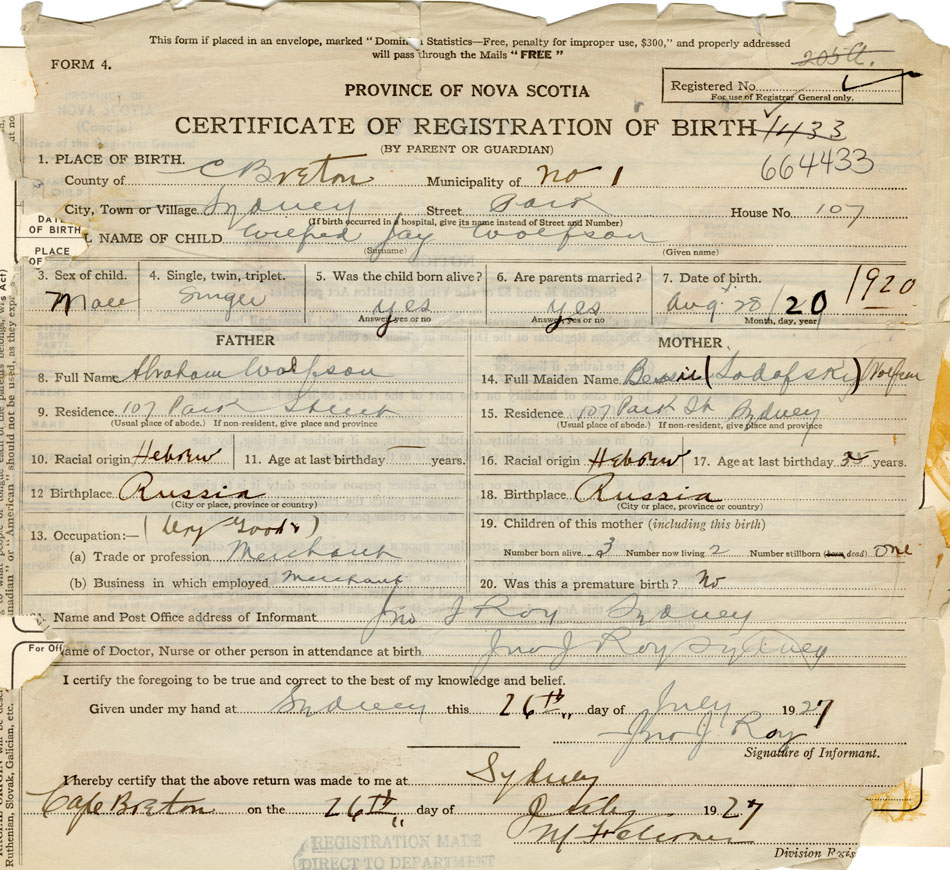 This form if placed in an envelope, marked " Domin n Statistics—Free, penalty for improper use, $300," and properly addressed
will pass through the Mails " FREE "
205 A.
FORM 4.
Registered No.
For use of Registrar General only.
PROVINCE OF NOVA SCOTIA
CERTIFICATE OF REGISTRATION OF BIRTH 1433
(BY PARENT OR GUARDIAN)
664433
1. PLACE OF BIRTH.
County of C Breton Municipality of No 1
City, Town or Village Sydney Street Park House No. 107
(If birth occurred in a hospital, give its name instead of Street and Number)
DATE OF BIRTH
PLACE OF
L NAME OF CHILD Wilfred Jay Wolfson
(Surname) (Given name)
3. Sex of child. 4. Single, twin, triplet. 5. Was the child born alive? 6. Are parents married? 7. Date of birth. 1920
Male Single yes yes Aug 28/20
Answer, yes or no Answer, yes or no Month, day, year
FATHER MOTHER
8. Full Name Abraham Wolfson 14. Full Maiden Name Bessie (Sodofski) Wolfson
9. Residence 107 Park Street 15. Residence 107 Park St Sydney
(Usual place of abode.) If non-resident, give place and province (Usual place of abode.) If non-resident, give place and province
10. Racial origin Hebrew 11. Age at last birthday years. 16. Racial origin Hebrew 17. Age at last birthday years.
12 Birthplace Russia 18. Birthplace Russia
(City or place, province or country) (City or place, province or country)
13. Occupation:— (Dry Goods) 19. Children of this mother (including this birth)
(a) Trade or profession Merchant Number born alive 3 Number now living 2 Number stillborn (born dead) one
(b) Business in which employed merchant 20. Was this a premature birth? No
21. Name and Post Office address of Informant Jno J Roy Sydney
For Off
ame of Doctor, Nurse or other person in attendance at birth Jno J Roy Sydney
I certify the foregoing to be true and correct to the best of my knowledge and belief.
Given under my hand at Sydney this 26th day of July 1927
Jno J Roy
Signature of Informant.
I hereby certify that the above return was made to me at Sydney
Cape Breton on the 26th day of 1927
Division Regis
REGISTRATION MADE
DIRECT TO DEPARTMENT